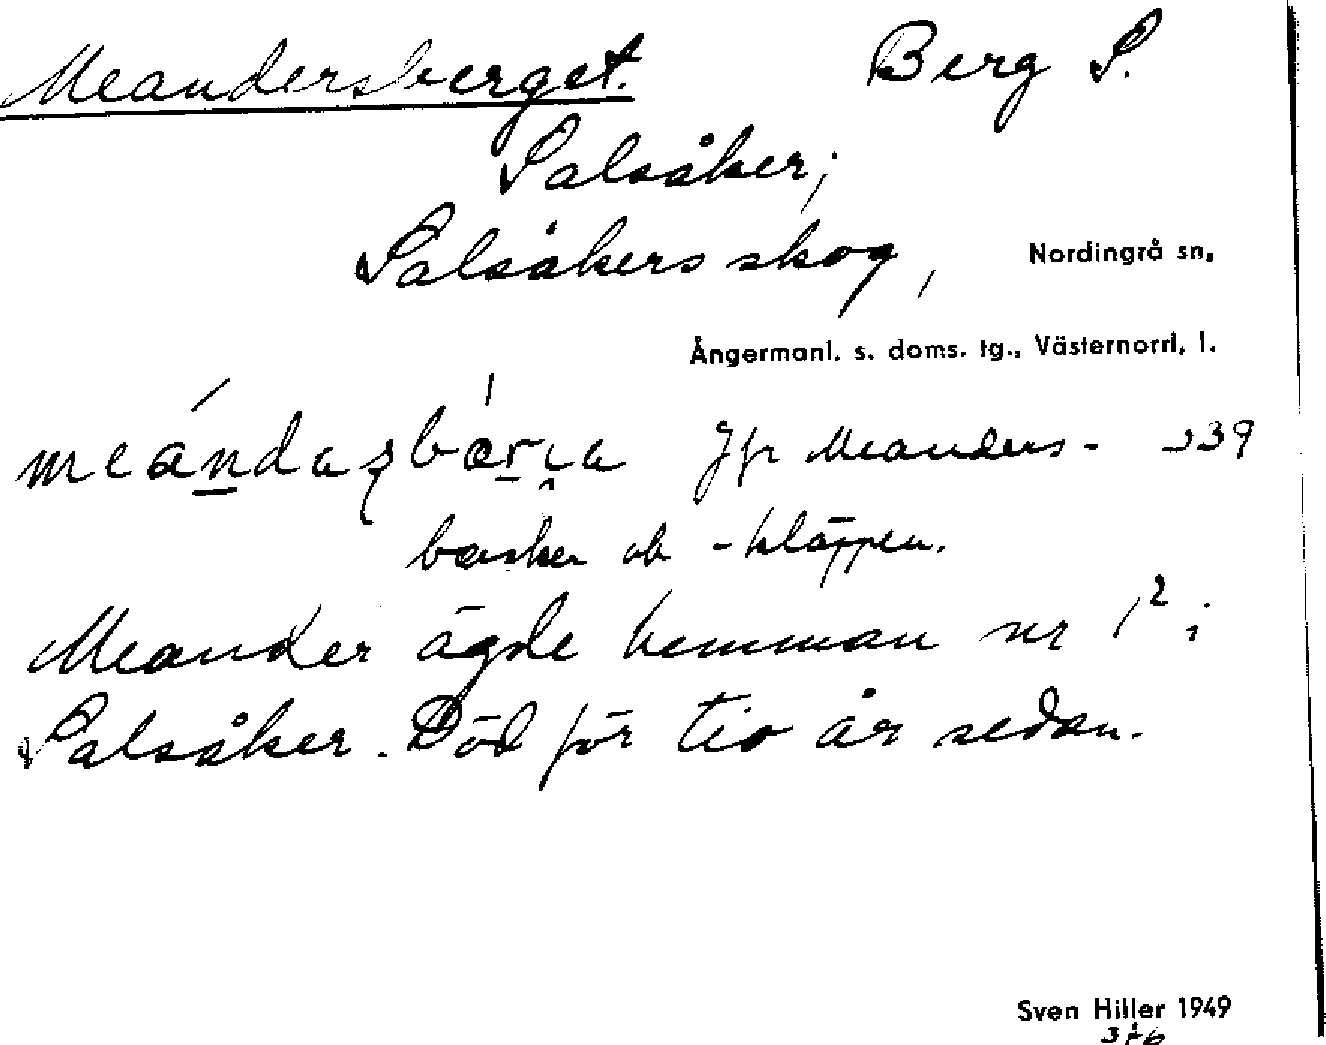 Meandersberget. Berg S.
Salsåker;
Salsåkers skog, Nordingrå sn,
Ångermanl. s. doms. tg., Västernorrl. l.
Jfr Meanders- 239
backen och -kläppen.
Meander ägde hemman nr 1² i
Salsåker. Död för tio år sedan.
Sven Hiller 1949